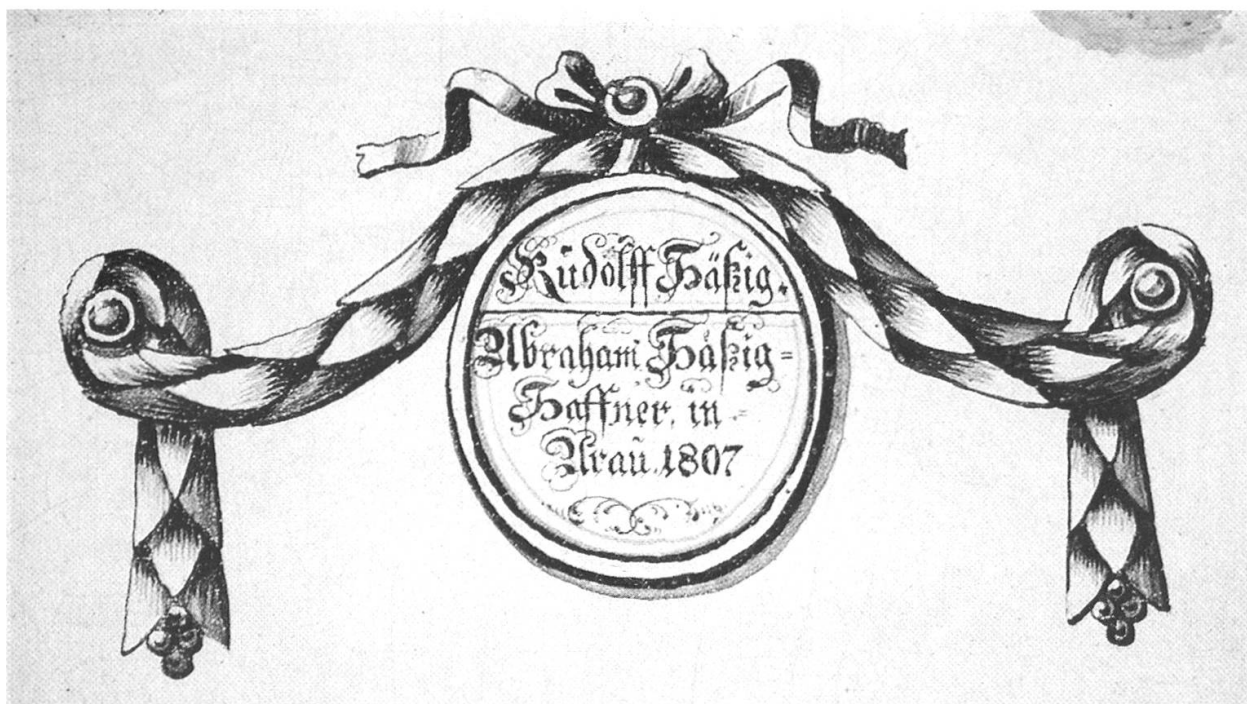 Rudolff Häßig.
Abraham Häßig=
Haffner, in=
Arau. 1807